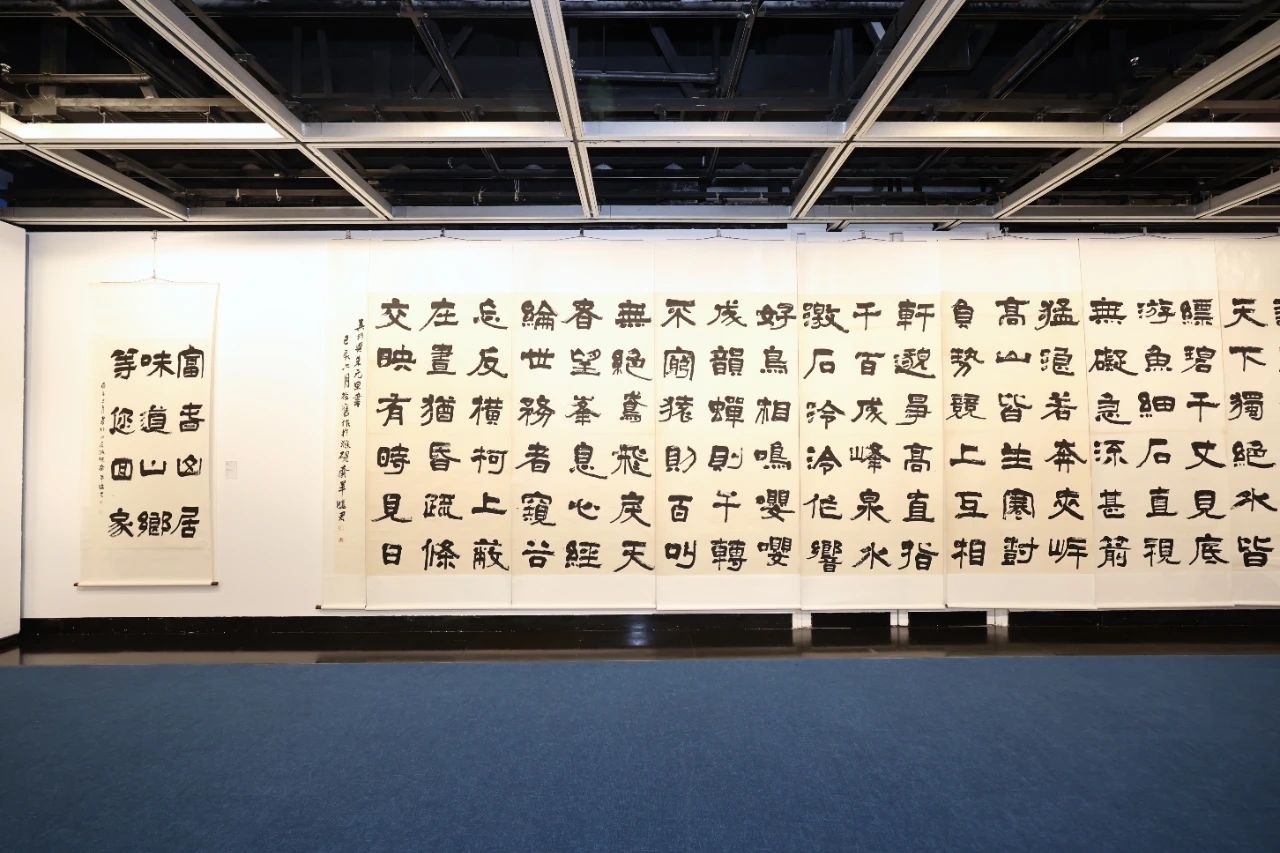 天下獨絕水皆
縹碧千丈見底
游魚細石直視
無礙急流甚箭
猛浪若奔夾岸
高山皆生寒
負勢競上互相
軒邈爭高直指
千百成峰泉水
激石泠泠作響
好鳥相鳴嚶嚶
成韻蟬則千轉
不窮猿則百叫
無絕鳶飛戾天
者望峯息心經
綸世務者窺谷
忘反橫柯上蔽
在晝猶昏疏條
交映有時見日
吳均與朱元思書
富春山居
味道山鄉
等您回家